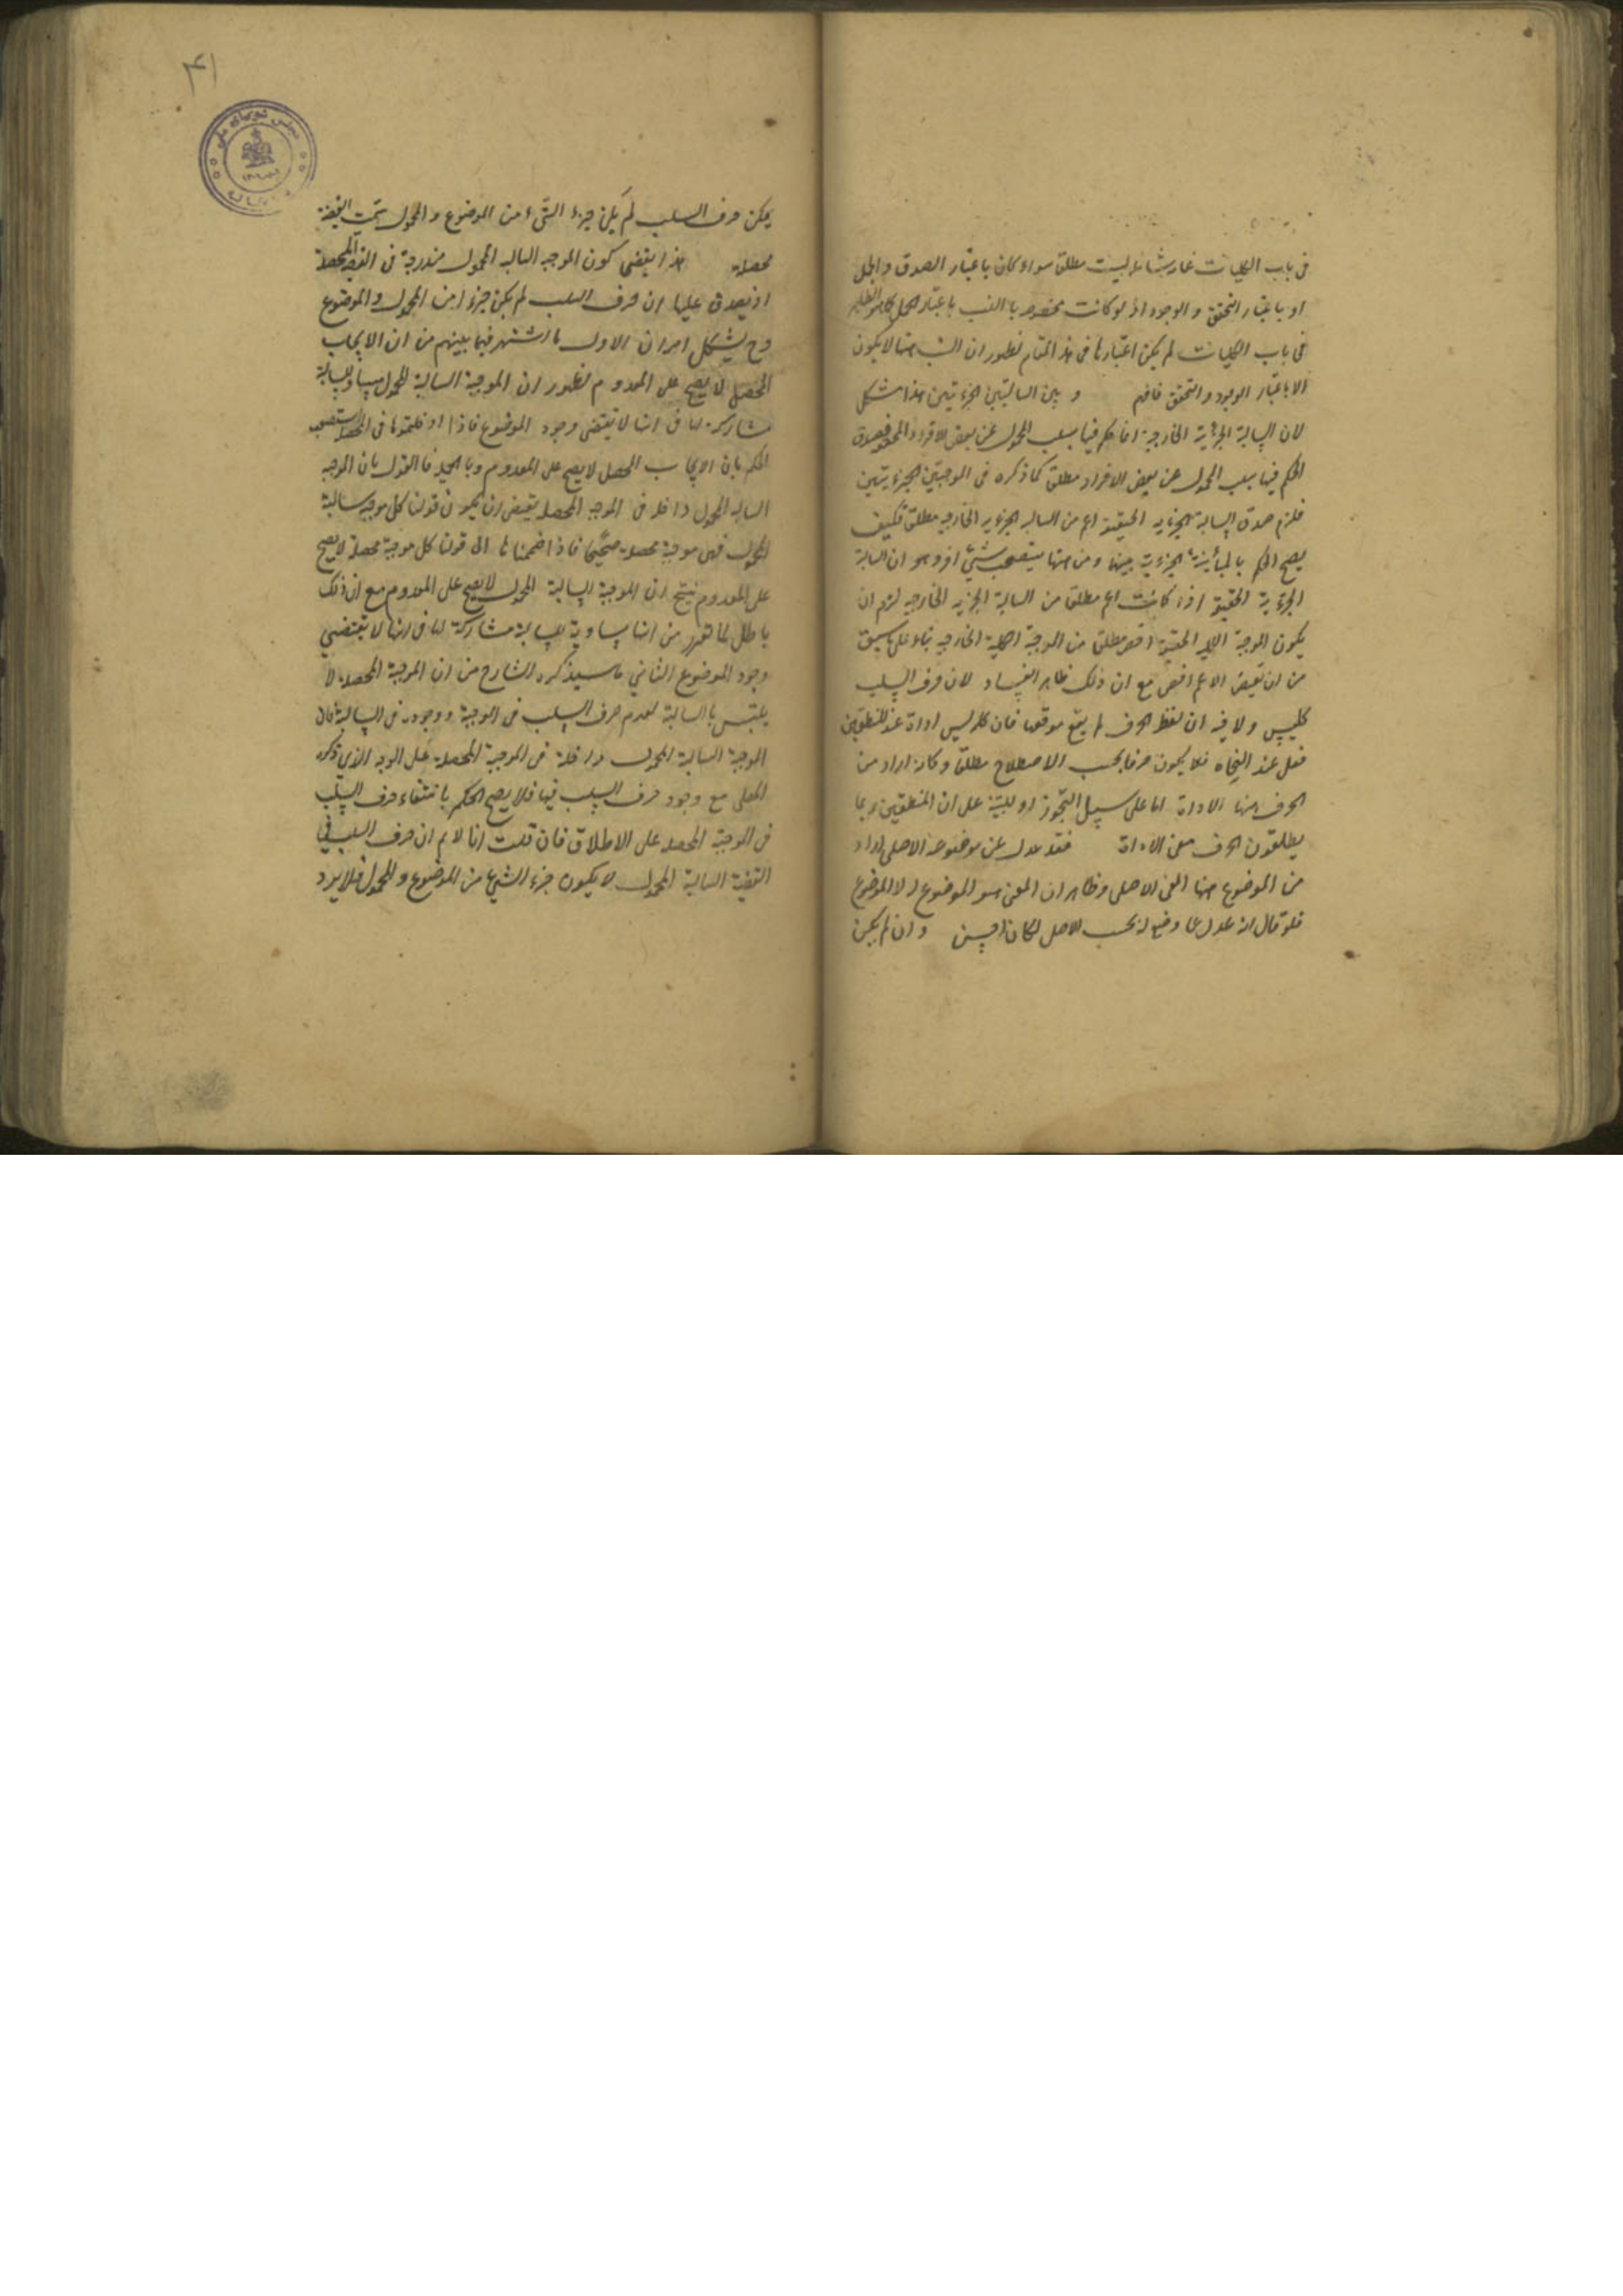 في باب الكليات غاية شانها ليست مطلق سواء كان باعتبار الصدق والحمل
او باعتبار التحقق والوجود اذ لو كانت مخصوصة بالنسب باعتبار الحمل كما هو الظاهر
في باب الكليات لم يكن اعتبارها في هذا المقام لظهور ان النسب ههنا لا يكون
الا باعتبار الوجود والتحقق فافهم و بين السالبتين الجزءيتين هذا مشكل
لان السالبة الجزئية الخارجية انما حكم فيها بسلب المحمول عن بعض الافراد المحققة فصدق
الحكم فيها بسلب المحمول عن بعض الافراد مطلق كما ذكره في الموجبتين الجزءيتين
فلزم صدق السالبة الجزءيه الحقيقية اعم من السالبه الجزءيه الخارجيه مطلق فكيف
يصح الحكم بالمباينة الجزءية بينهما ومن ههنا يتعجب شيئ اخر وهو ان السالبة
الجزءية الحقيقية اذا كانت اعم مطلق من السالبة الجزئيه الخارجيه لزم ان
يكون الموجبة الكلية الحقيقية اخص مطلق من الموجبة الكلية الخارجيه بناء على ما سبق
من ان نقيض الاعم اخص مع ان ذلك ظاهر الفساد لان حرف السلب
كليس ولا فيه ان لفظ الحرف لم يقع موقعها فان كلمة ليس اداة عند المنطقيين
فعل عند النحاه فلا يكون حرفا بحسب الاصطلاح مطلقا وكانه اراد من
الحرف ههنا الاداة اما على سبيل التجوز او للتنبيه على ان المنطقيين ربما
يطلقون الحرف معنى الاداة فقد عدل عن موضوعه الاصلي اراد
من الموضوع ههنا المعنى الاصلي وظاهر ان المعنى هو الموضوع له لا الموضوع
فلو قال انه عدل عما وضع له بحسب الاصل لكان احسن وان لم يكن
۴۱
مجلس شورای ملی
يكن حرف السلب لم يكن جزء الشيء من الموضوع والمحمول سميت القضية
محصلة هذا يقتضي كون الموجبه السالبه المحمول مندرجة في القضية المحصلة
اذ يصدق عليها ان حرف السلب لم يكن جزءا من المحمول والموضوع
وح يشكل امران الاول ما اشتهر فيما بينهم من ان الايجاب
المحصل لا يصح على المعدوم لظهور ان الموجبة السالبة المحمول مساوية للسالبة
مشاركة لها في انها لا تقتضي وجود الموضوع فاذا ادخلتموها في المحصلة
الحكم بان الايجاب المحصل لا يصح على المعدوم وبالجملة فالقول بان الموجبه
السالبه المحمول داخله في الموجبه المحصلة يقتضي ان يكون قولنا كل موجبه سالبة
المحمول فهي موجبة محصلة صحيحا فاذا ضممناها الى قولنا كل موجبة محصلة لا يصح
على المعدوم ينتج ان الموجبة السالبة المحمول لا يصح على المعدوم مع ان ذلك
باطل لما تقرر من انها مساوية للسالبة مشاركة لها في انها لا تقتضي
وجود الموضوع الثاني ما سيذكره الشارح من ان الموجبة المحصلة لا
يلتبس بالسالبة لعدم حرف السلب في الموجبة ووجوده في السالبة فان
الموجبة السالبة المحمول داخلة في الموجبة المحصلة على الوجه الذي ذكره
المحلي مع وجود حرف السلب فيها فلا يصح الحكم بانتفاء حرف السلب
في الموجبة المحصلة على الاطلاق فان قلت انا لا نم ان حرف السلب في
القضية السالبة المحمول لا يكون جزء الشيء من الموضوع والمحمول فلا يرد